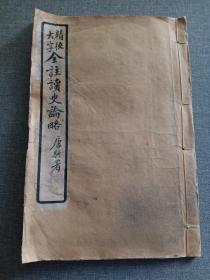 精校
大字
全註讀史論略
唐駝署